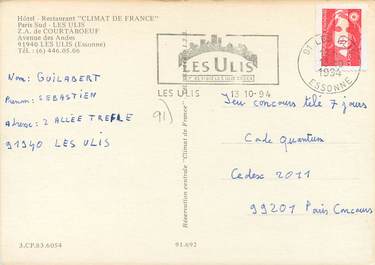 Hôtel - Restaurant "CLIMAT DE FRANCE"
Paris Sud - LES ULIS
Z.A. de COURTABOEUF
Avenue des Andes
91940 LES ULIS (Essonne)
Tél. (6) 446.05.06
LES ULIS
LES ULIS 13 10-94
91 LES
1994
ESSONNE
Nom: GUILABERT
Prenom: SEBASTIEN
Adresse: 2 ALLÉE TREFLE
91940 LES ULIS
91)
Réservation centrale "Climat de France"
Jeu concours télé 7 jours
Code Quantum
Cedex 2011
99201 Paris Concours
3.CP.83.6054
91.692